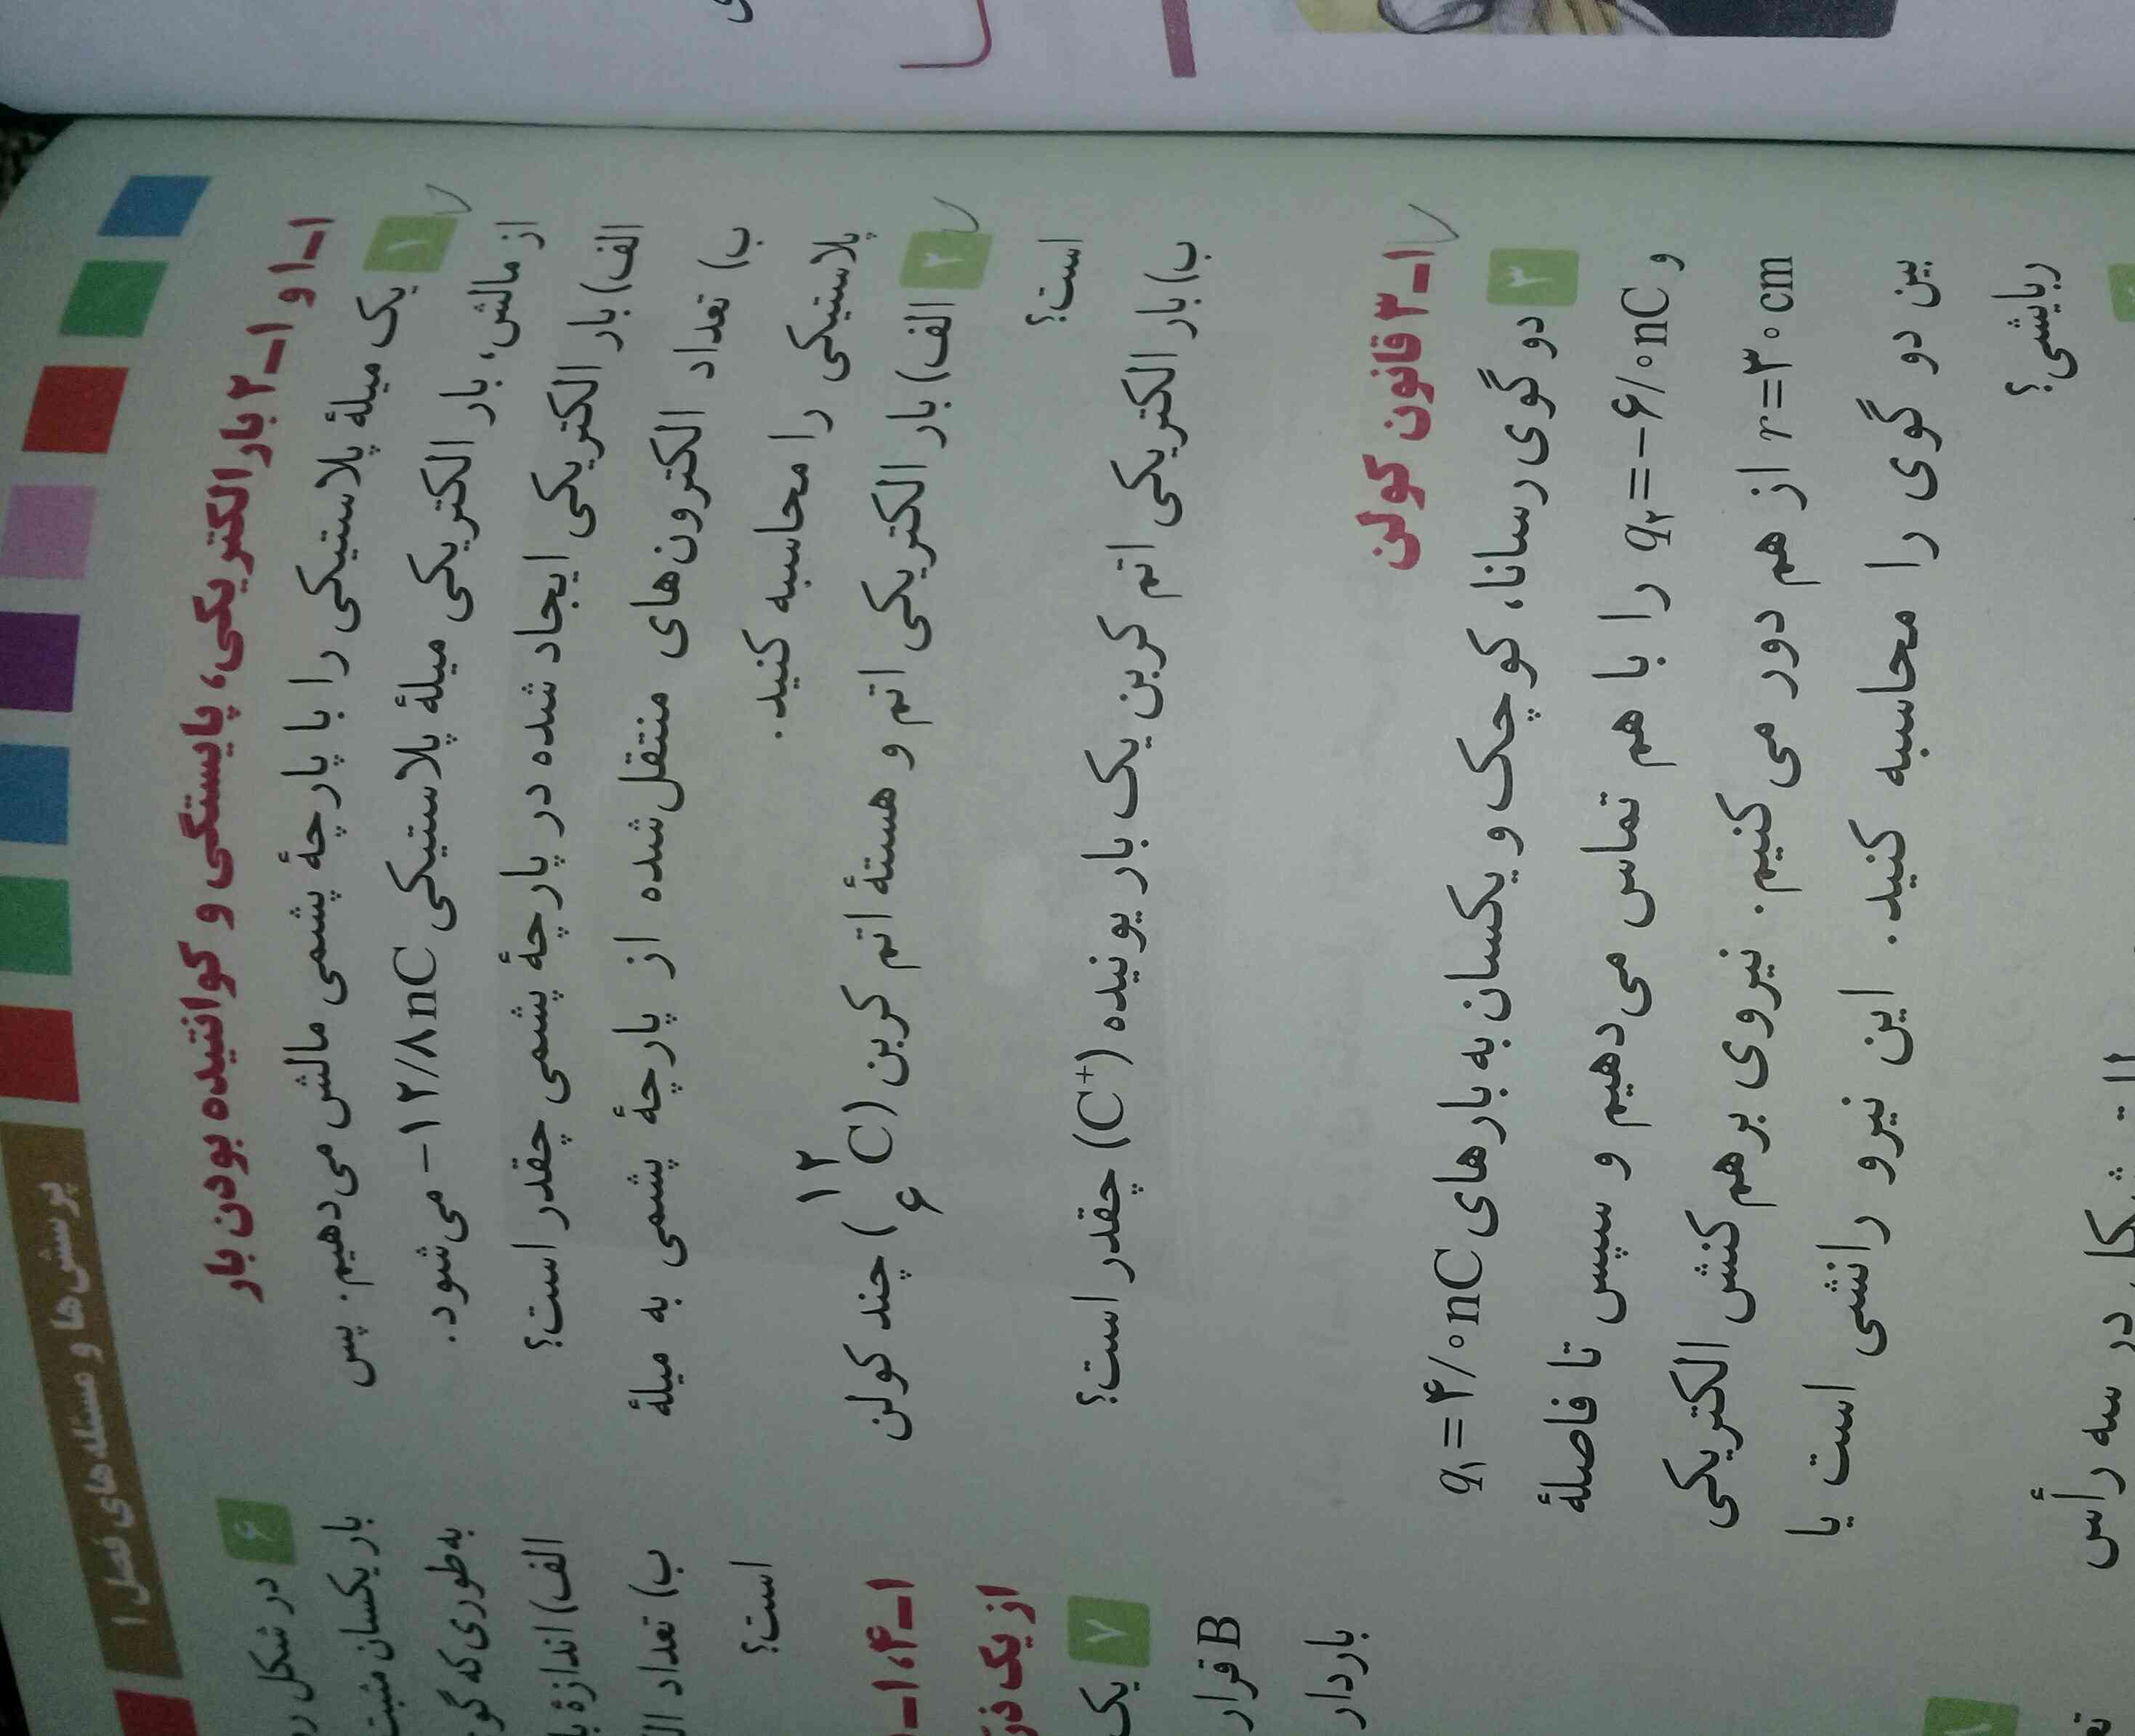 پرسش‌ها و مسئله‌های فصل ۱
۱ــ۱ و ۱ــ۲ بار الکتریکی، پایستگی و کوانتیده بودن بار
۱ یک میلهٔ پلاستیکی را با پارچهٔ پشمی مالش می‌دهیم. پس
از مالش، بار الکتریکی میلهٔ پلاستیکی ۱۲/۸nC− می‌شود.
الف) بار الکتریکی ایجاد شده در پارچهٔ پشمی چقدر است؟
ب) تعداد الکترون‌های منتقل شده از پارچهٔ پشمی به میلهٔ
پلاستیکی را محاسبه کنید.
۲ الف) بار الکتریکی اتم و هستهٔ اتم کربن (¹²₆C) چند کولن
است؟
ب) بار الکتریکی اتم کربن یک بار یونیده (C⁺) چقدر است؟
۱ــ۳ قانون کولن
۳ دو گوی رسانا، کوچک و یکسان به بارهای q₁=۴/۰nC
و q₂=−۶/۰nC را با هم تماس می‌دهیم و سپس تا فاصلهٔ
r=۳۰cm از هم دور می‌کنیم. نیروی برهم‌کنش الکتریکی
بین دو گوی را محاسبه کنید. این نیرو رانشی است یا
ربایشی؟
سه رأس
۶ در شکل
بار یکسان مثبت
به‌طوری که
الف) اندازهٔ
ب) تعداد
است؟
۱ــ۴،
از یک
۷ یک
B قرار
باردار